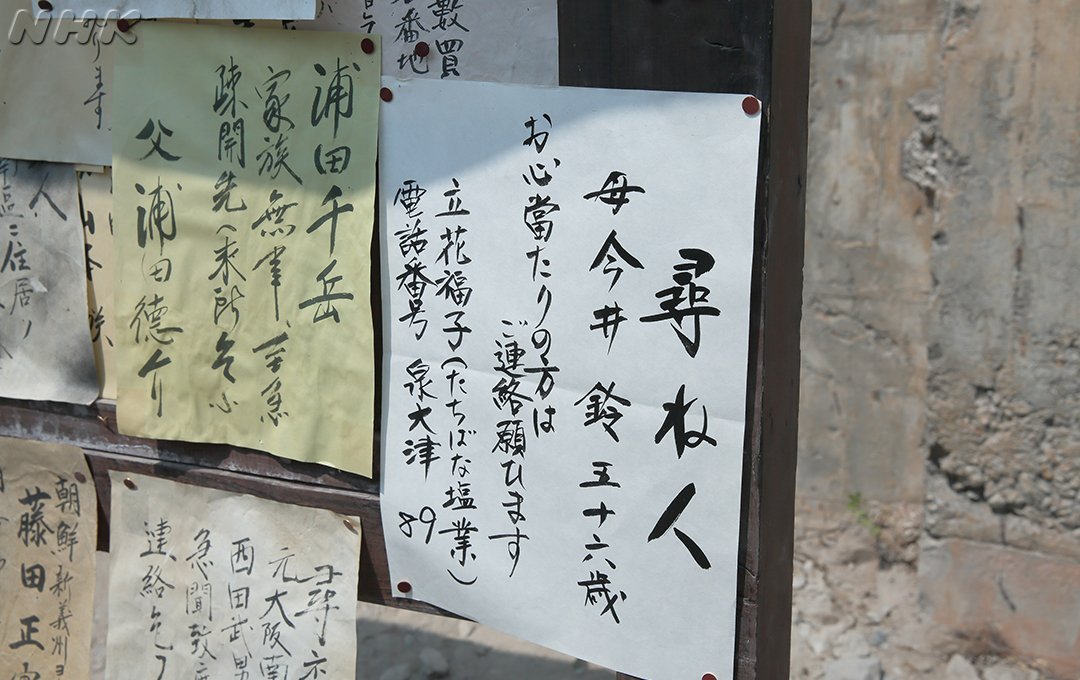 NHK
尋ね人
母今井鈴五十六歳
お心當たりの方は
ご連絡願ひます
立花福子（たちばな塩業）
電話番号 泉大津 89
浦田千岳
家族無事
疎開先へ来所乞ふ
父浦田徳
數買
番地
人
南區ニ住居ノ
本
朝鮮新義州ヨ
藤田正
尋
元大阪南
西田武男
急聞致度
連絡乞フ